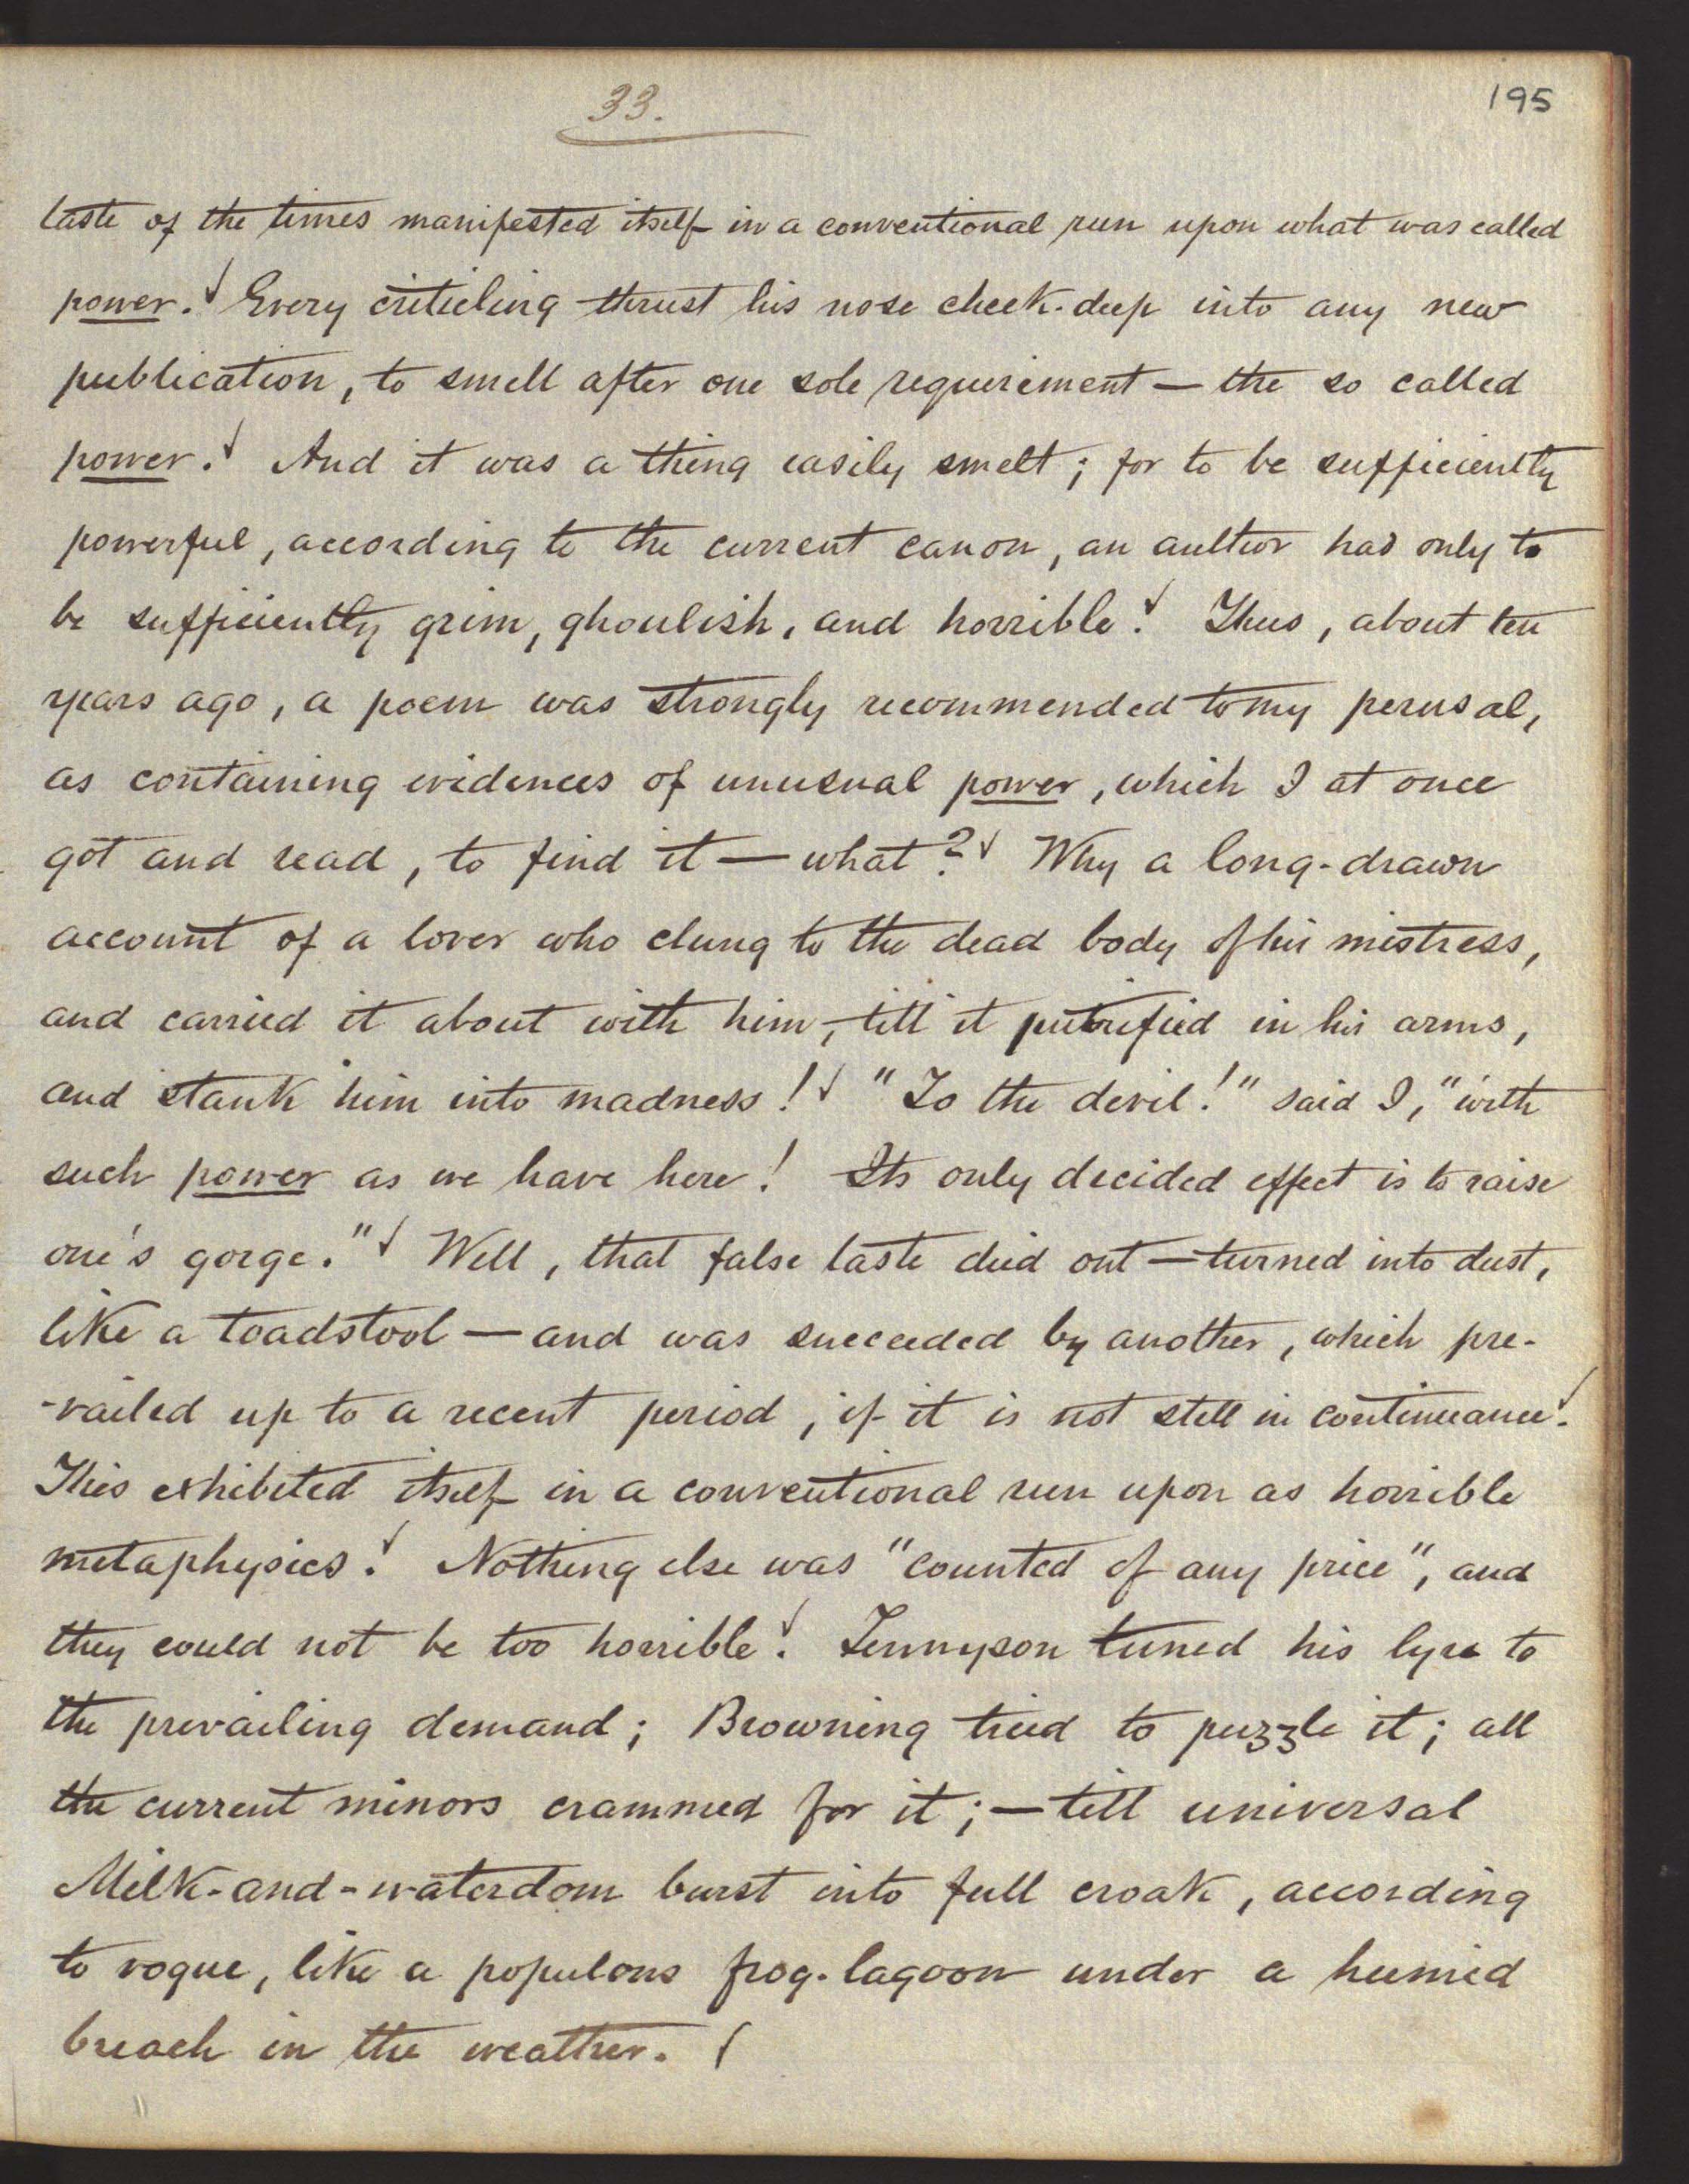 33.
195
taste of the times manifested itself in a conventional run upon what was called
power. Every criticling thrust his nose cheek-deep into any new
publication, to smell after one sole requirement — the so called
power. And it was a thing easily smelt; for to be sufficiently
powerful, according to the current canon, an author had only to
be sufficiently grim, ghoulish, and horrible. Thus, about ten
years ago, a poem was strongly recommended to my perusal,
as containing evidences of unusual power, which I at once
got and read, to find it — what? Why a long-drawn
account of a lover who clung to the dead body of his mistress,
and carried it about with him, till it putrified in his arms,
and stank him into madness! "To the devil!" said I, "with
such power as we have here! Its only decided effect is to raise
one's gorge." Well, that false taste died out — turned into dust,
like a toadstool — and was succeeded by another, which pre-
-vailed up to a recent period, if it is not still in continuance.
This exhibited itself in a conventional run upon as horrible
metaphysics. Nothing else was "counted of any price", and
they could not be too horrible. Tennyson tuned his lyre to
the prevailing demand; Browning tried to puzzle it; all
the current minors crammed for it; — till universal
Milk-and-waterdom burst into full croak, according
to vogue, like a populous frog-lagoon under a humid
breach in the weather.